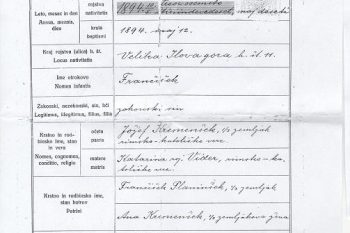 Leto, mesec in dan
Annus, mensis,
dies
rojstva
nativitatis
1894.
maj deseti
krsta
baptismi
1894. maj 12.
Kraj rojstva (ulica) h. št.
Locus nativitatis
Velika Ilova gora h. št. 11.
Ime otrokovo
Nomen infantis
Frančišek
Zakonski, nezakonski, sin, hči
Legitimus, illegitimus, filius, filia
zakonski sin
Krstno in rod-
binsko ime,
stan in vera
Nomen, cognomen,
conditio, religio
očeta
patris
Jožef Kremenšek, 1/2 zemljak
rimsko-katoliške vere.
matere
matris
Katarina roj. Vider, rimsko-ka-
toliške vere.
Krstno in rodbinsko ime,
stan botrov
Patrini
Frančišek Planinšek, 1/2 zemljak
Ana Kremenšek, 1/2 zemljakova žena